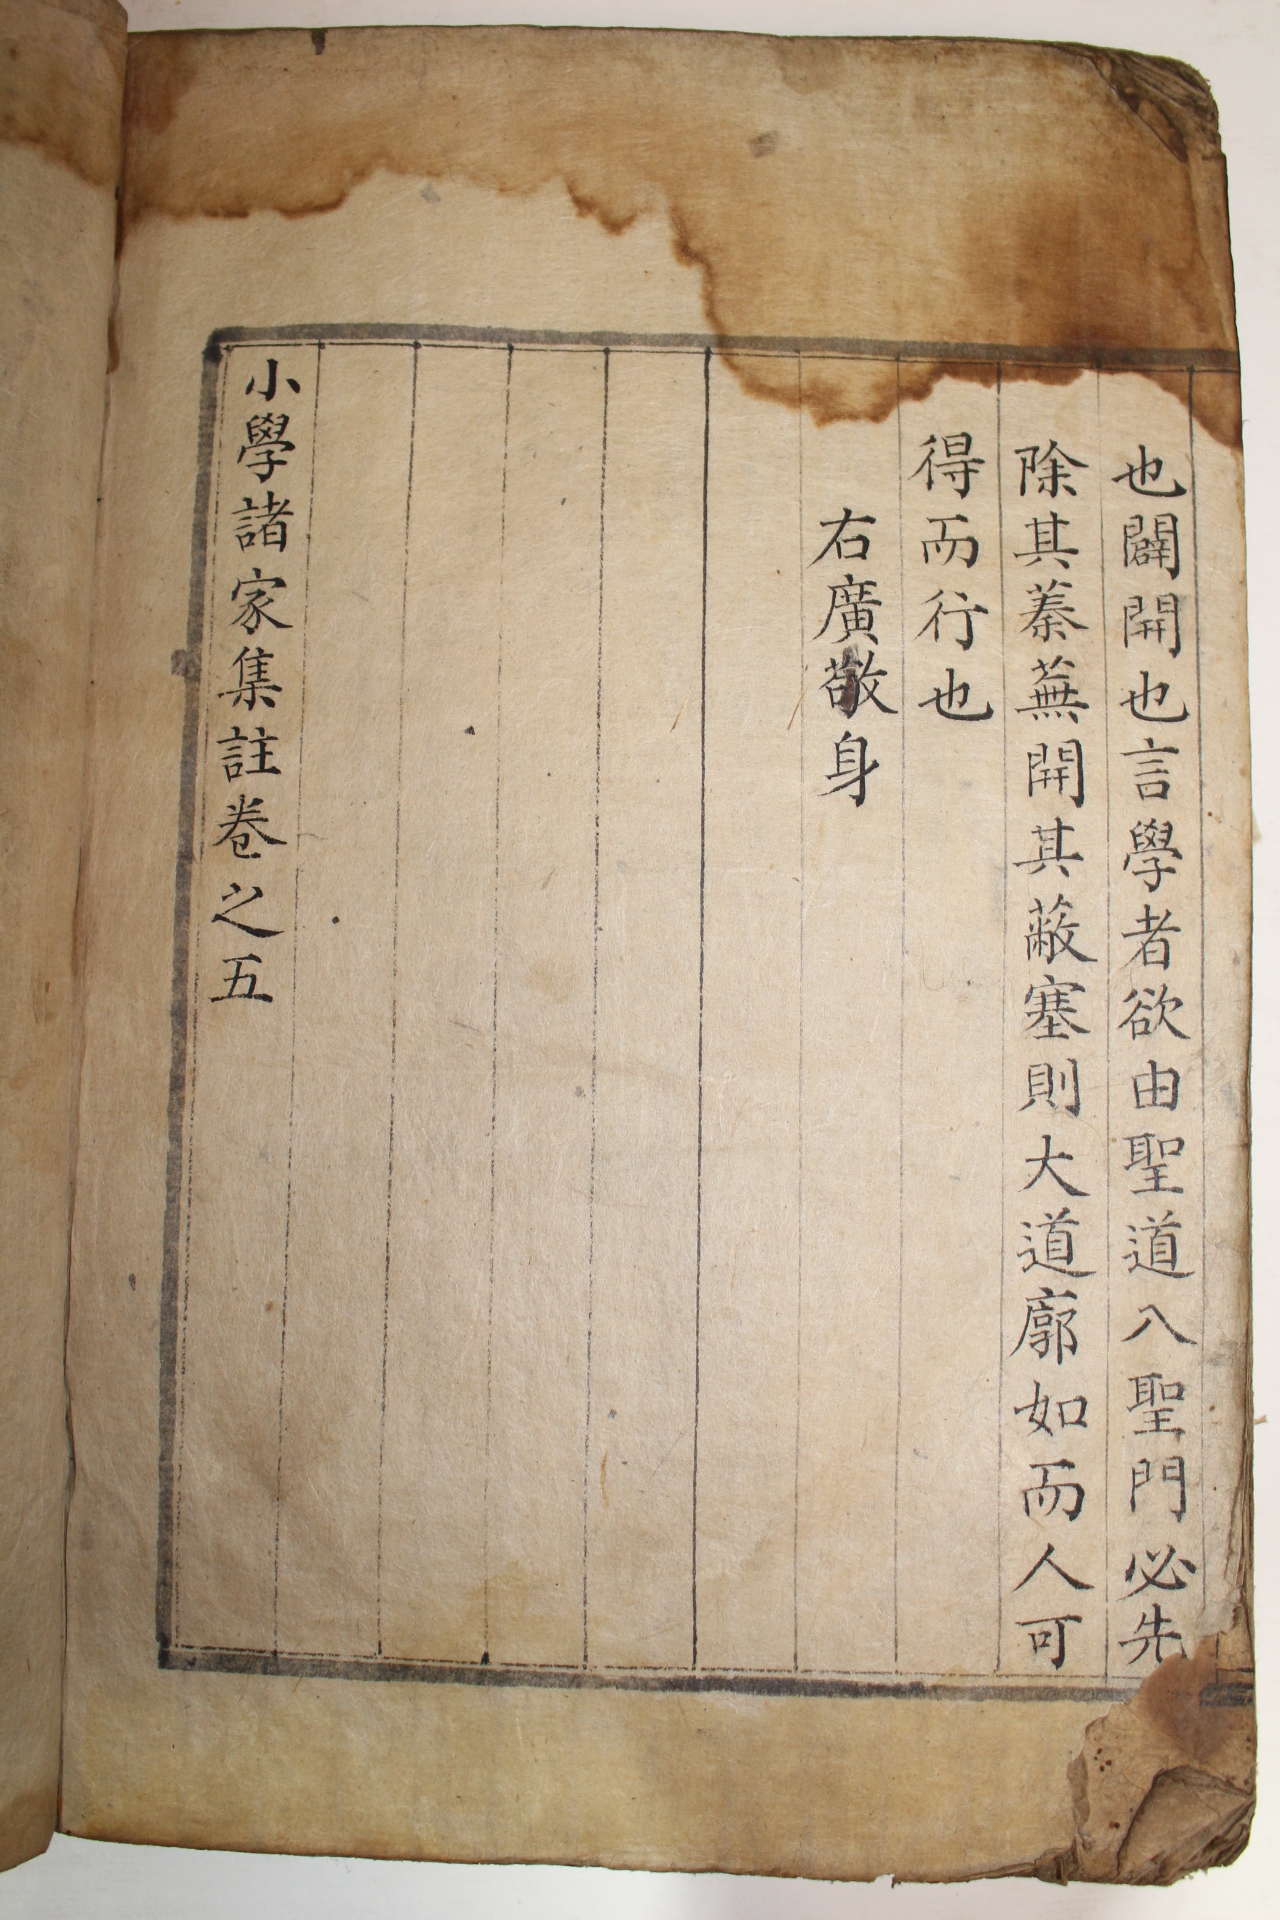 也闢開也言學者欲由聖道入聖門必先
除其蓁蕪開其蔽塞則大道廓如而人可
得而行也
右廣敬身
小學諸家集註卷之五